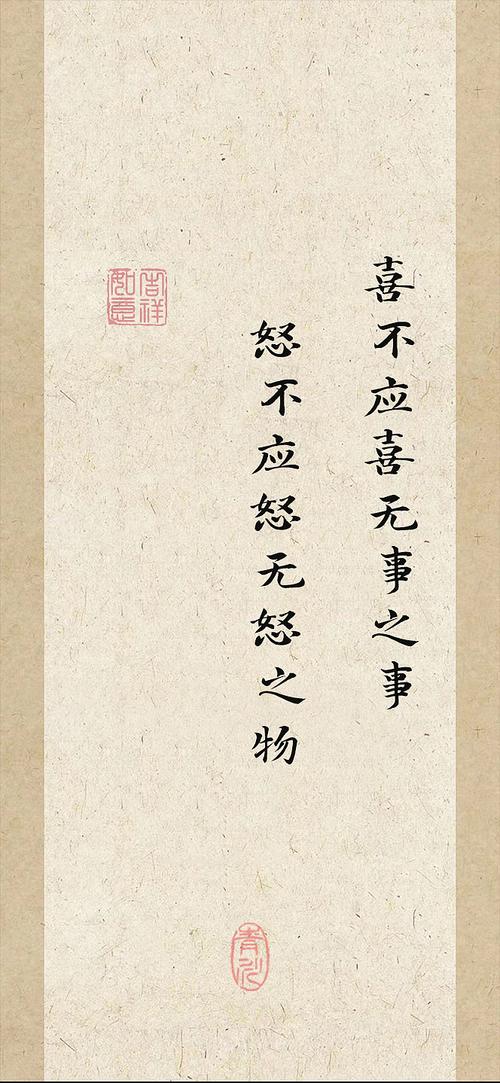 喜不应喜无事之事
怒不应怒无怒之物
吉祥
如意